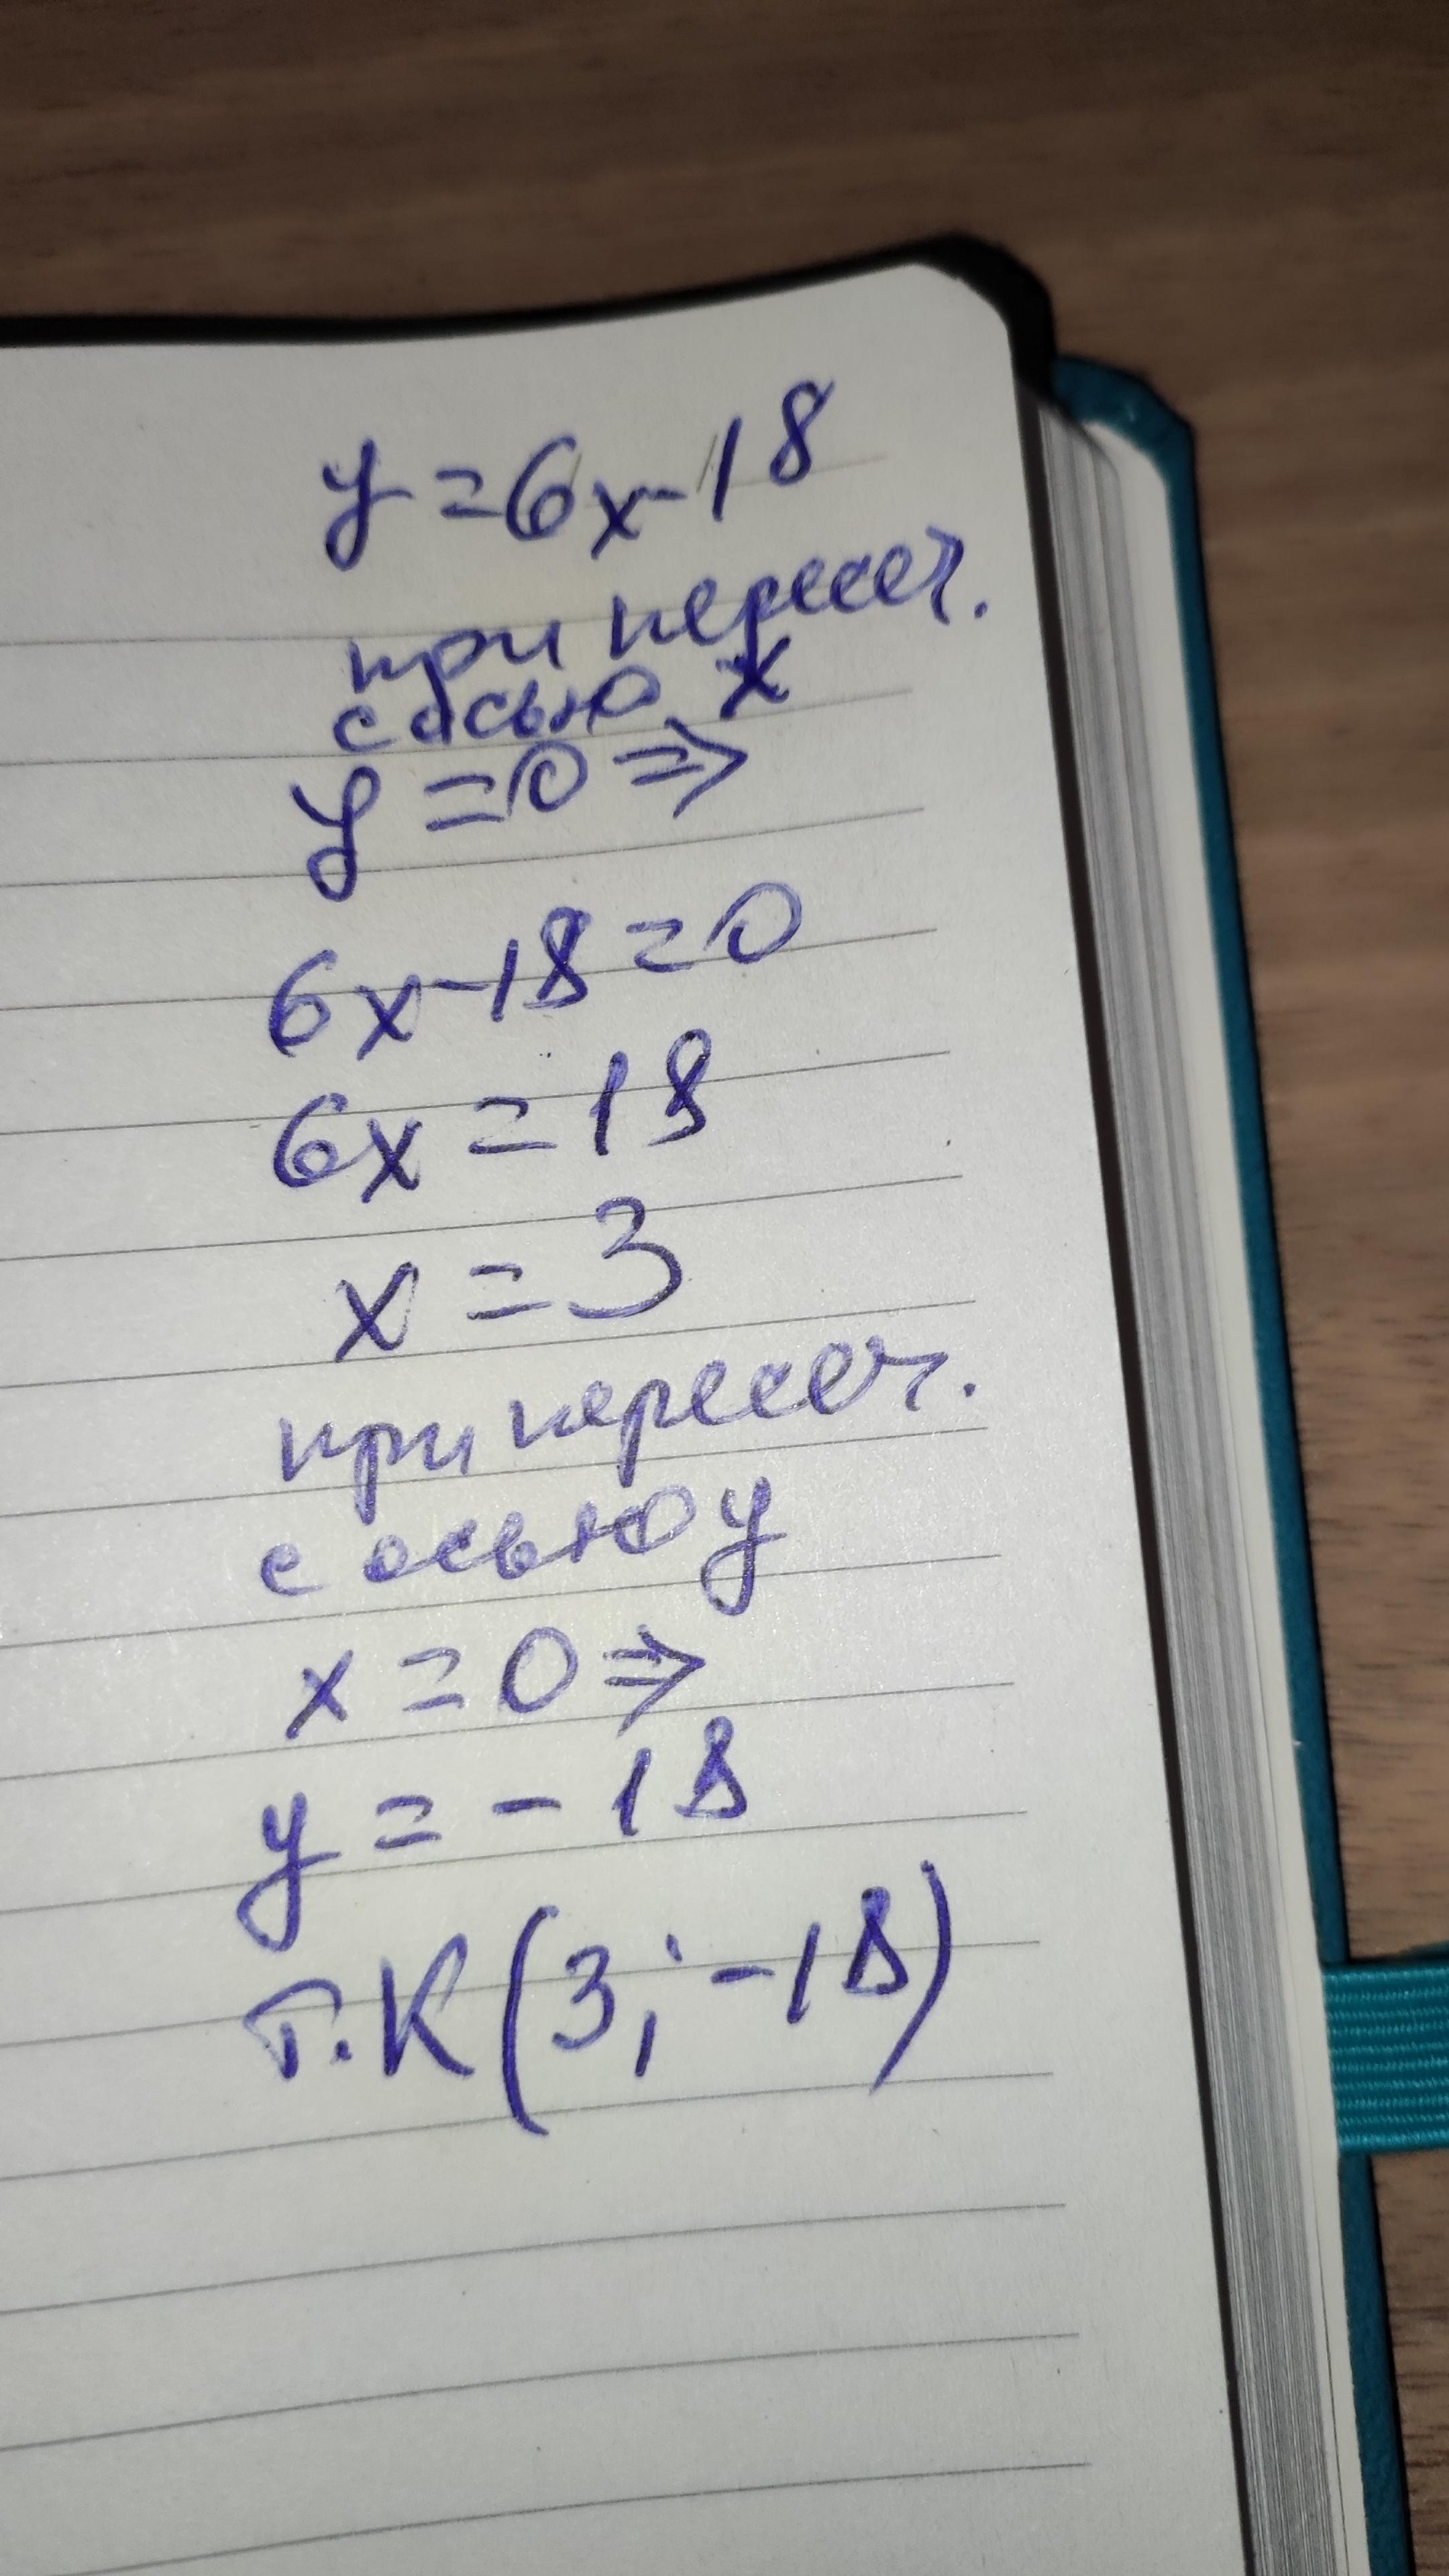 y = 6x - 18
при пересеч.
с осью x
y = 0 ⇒
6x - 18 = 0
6x = 18
x = 3
при пересеч.
с осью y
x = 0 ⇒
y = - 18
т. К (3; -18)